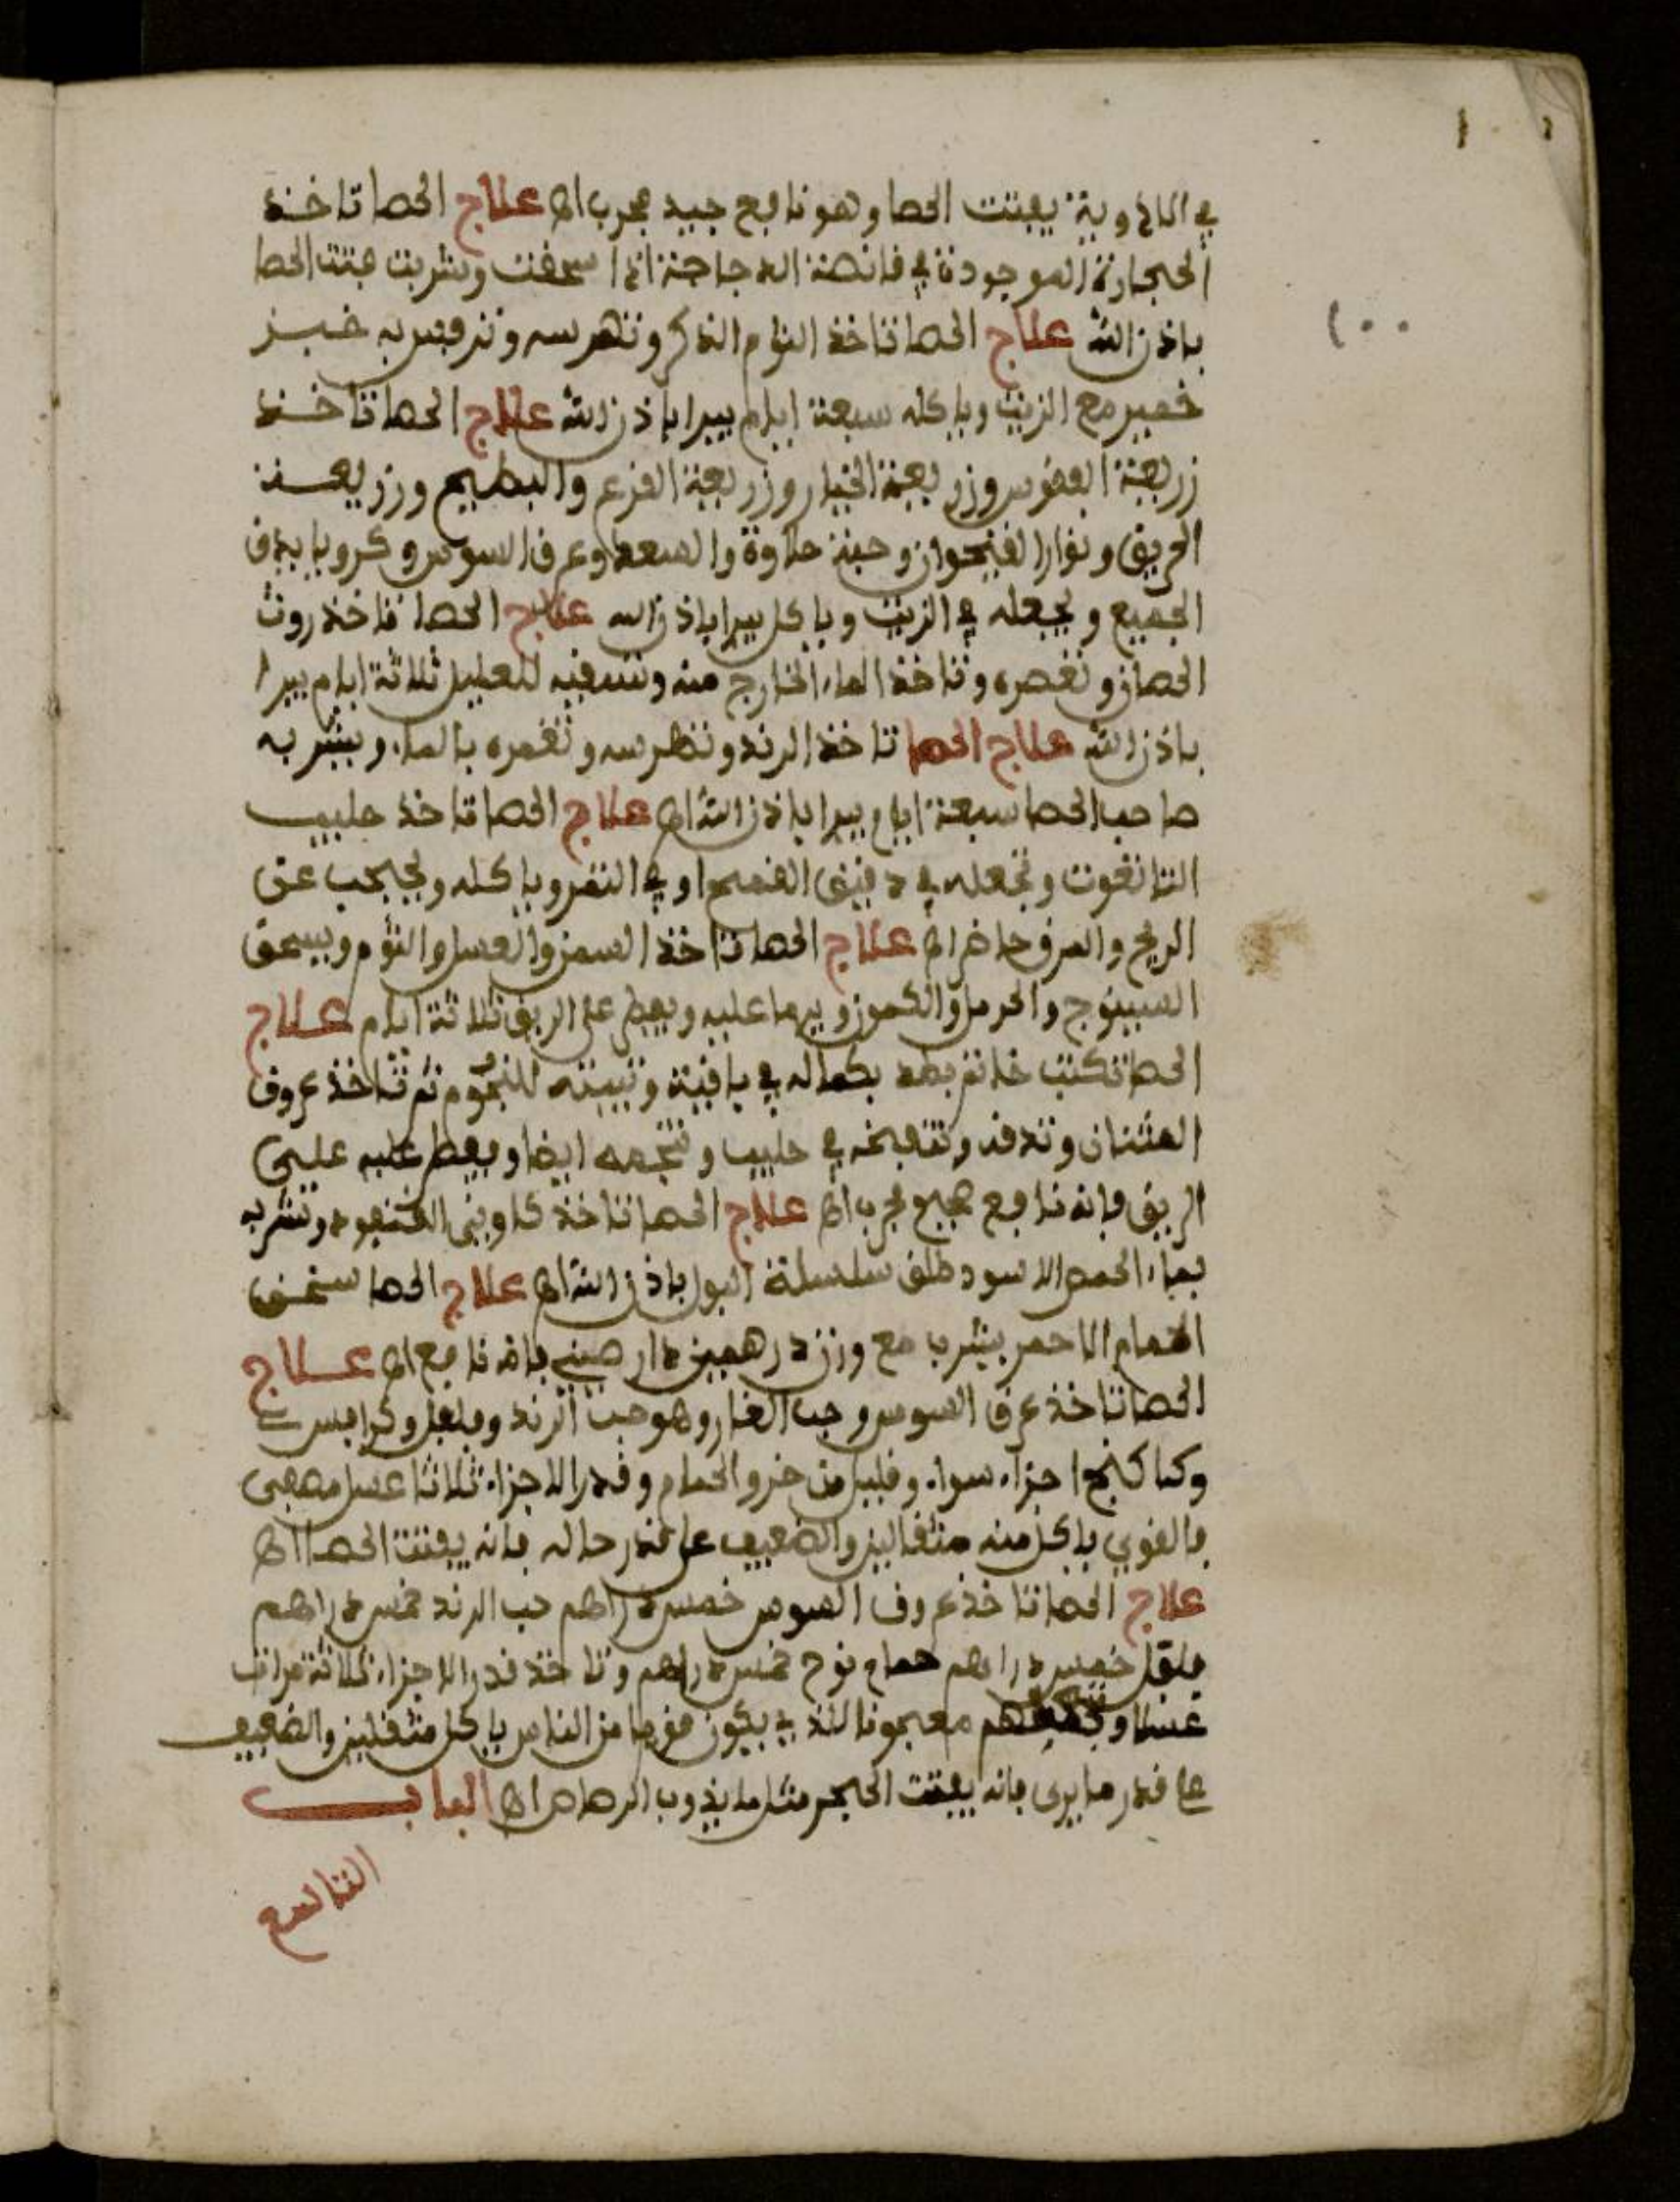 في الادوية يفتت الحصا وهو نافع جيد مجرب اه علاج الحصا تاخذ
الحجارة الموجودة في قانصة الدجاجة اذا سحقت وشربت فتت الحصا
باذن الله علاج الحصا تاخذ الثوم الذكر وتهرسه به خبز
١٠٠
خمير مع الزيت وياكله سبعة ايام يبرا باذن الله علاج الحصا تاخذ
زريعة الفقوس وزريعة الخيار وزريعة القرع والبطيخ وزريعة
الحريق ونوار القيحوان وحبة حلاوة والسعد وعرق السوس وكرويا يدق
الجميع ويجعله في الزيت وياكل يبرا باذن الله علاج الحصا تاخذ روث
الحصان وتعصره وتاخذ الماء الخارج منه وتسقيه للعليل ثلاثة ايام يبرا
باذن الله علاج الحصا تاخذ الرند وتهرسه وتغمره بالماء ويشربه
صاحب الحصا سبعة ايام يبرا باذن الله اه علاج الحصا تاخذ حليب
التانغوت وتجعله في دقيق القمح او في التمر وياكله ويحجب عن
الريح والمرق حاضر اه علاج الحصا تاخذ السمن والعسل والثوم ويسحق
السينوج والحرمل والكمون ويرما عليه ويفطر على الريق ثلاثة ايام علاج
الحصا تكتب خاتم بطد بكماله في باقية وتبيته للنجوم ثم تاخذ عروق
العثنان وتدقه وتنفخه في حليب وتنجمه ايضا ويفطر عليه على
الريق فانه نافع صحيح مجرب اه علاج الحصا تاخذ وتشربه
بماء الحمص الاسود طلق سلسلة البول باذن الله اه علاج الحصا
الحمام الاحمر يشرب مع وزن درهمين دار صيني فانه نافع اه علاج
الحصا تاخذ عرق السوس وحب الغار وهو حب الرند وفلفل وكرافس
وكاكنج اجزاء سواء وقليل من خرو الحمام وقدر الاجزاء ثلاثا عسل مصفى
فالقوي ياكل منه مثقالين والضعيف على قدر حاله فانه يفتت الحصا اه
علاج الحصا تاخذ عروق السوس خمس دراهم حب الرند خمس دراهم
فلفل خمس دراهم حمام نوح خمس دراهم وتاخذ قدر الاجزاء ثلاثة مرات
عسلا معجونا الذي يكون قويا من الناس ياكل مثقلين والضعيف
على قدر ما يرى فانه يفتت الحجر مثل ما يذوب الرصاص اه الباب
التاسع